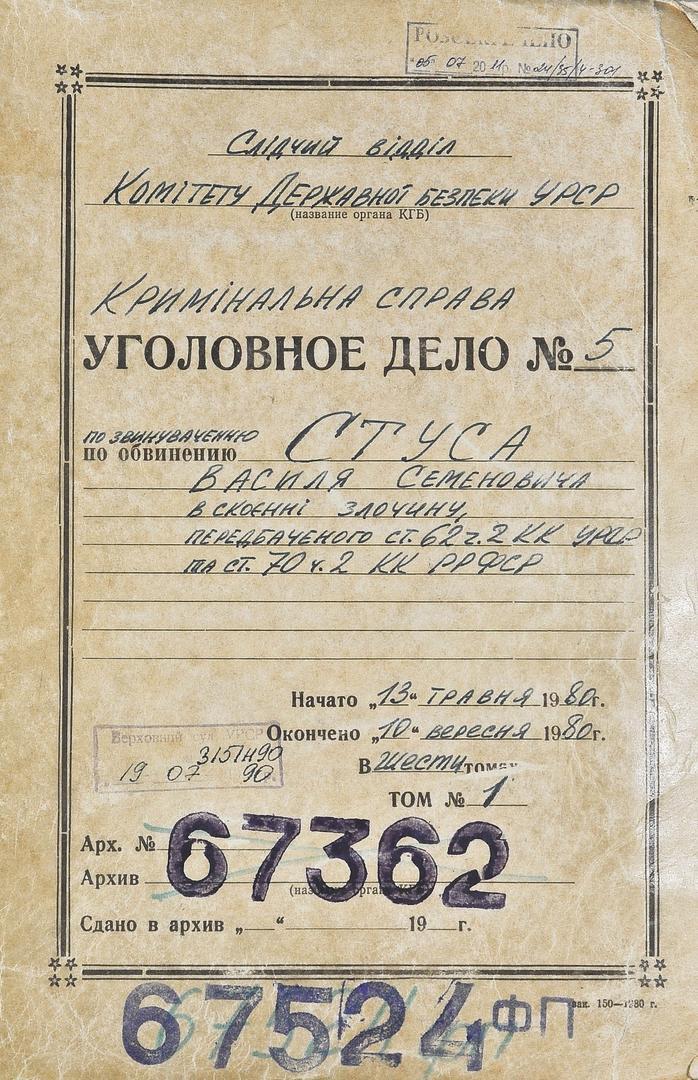 РОЗСЕКРЕЧЕНО
"05" 07 2011р. №24/35/4-301
Слідчий відділ
Комітету Державної безпеки УРСР
(название органа КГБ)
Кримінальна справа
УГОЛОВНОЕ ДЕЛО № 5
по звинуваченню
по обвинению СТУСА
Василя Семеновича
в скоєнні злочину,
передбаченого ст. 62 ч. 2 КК УРСР
та ст. 70 ч. 2 КК РРФСР
Начато „13“ травня 1980г.
Окончено „10“ вересня 1980г.
Верховний суд УРСР
315Н90
19 07 90.
В шести томах
ТОМ № 1
67362
Арх. №
Архив
(название органа КГБ)
Сдано в архив „ “ 19 г.
67524 ФП
зак. 150—1980 г.